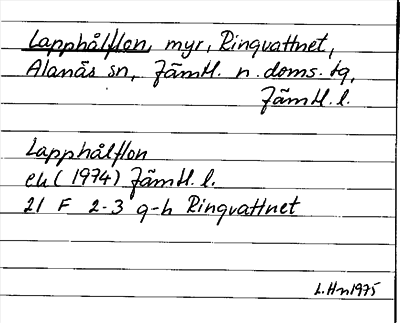 Lapphålflon, myr, Ringvattnet,
Alanäs sn, Jämtl. n. doms. tg,
Jämtl. l.
Lapphålflon
ek (1974) Jämtl. l.
21 F 2-3 g-h Ringvattnet
L. Hn 1975